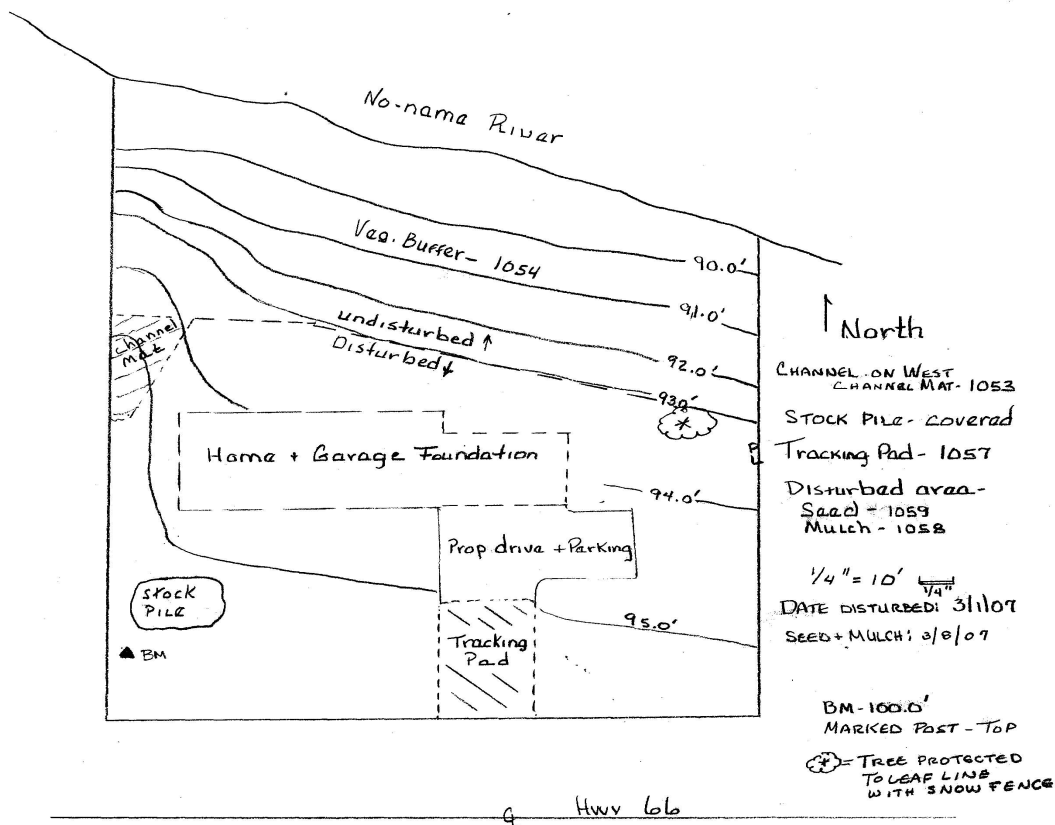 No-name River
Veg. Buffer - 1054
90.0'
91.0'
undisturbed ↑
Disturbed ↓
92.0'
93.0'
channel
mat
Home + Garage Foundation
94.0'
Prop drive + Parking
STOCK
PILE
95.0'
Tracking
Pad
BM
North
CHANNEL ON WEST
CHANNEL MAT - 1053
STOCK PILE - covered
Tracking Pad - 1057
Disturbed area -
Seed - 1059
Mulch - 1058
1/4" = 10' 1/4"
DATE DISTURBED: 3/1/07
SEED + MULCH: 3/8/07
BM - 100.0'
MARKED POST - TOP
= TREE PROTECTED
TO LEAF LINE
WITH SNOW FENCE
Hwy 66